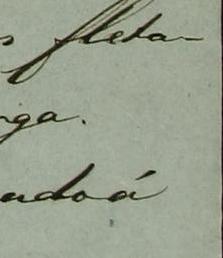 s fleta-
rga.
adoá